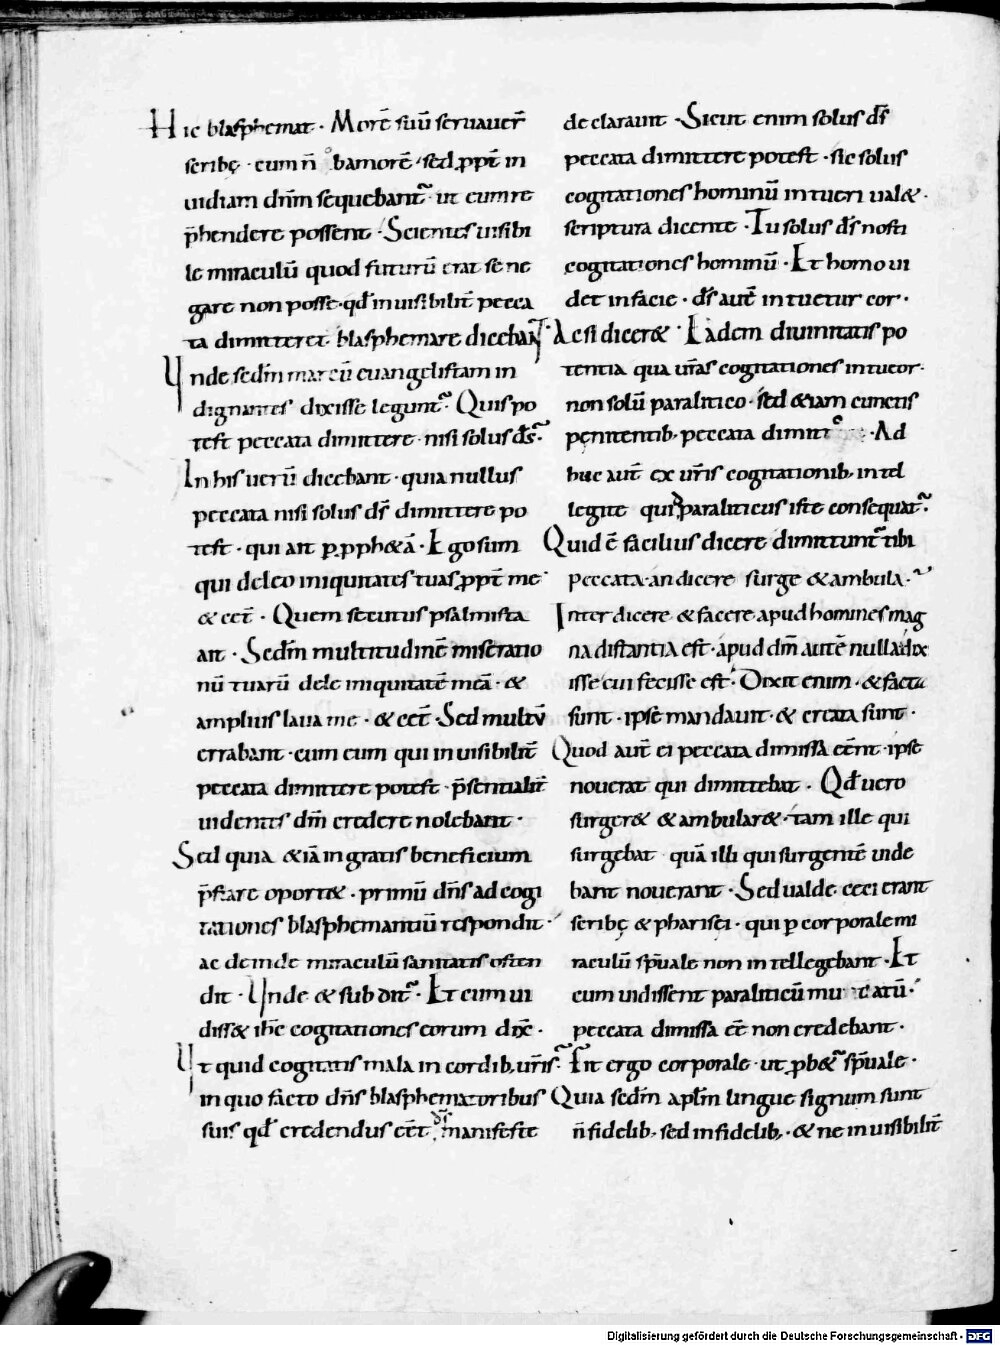 Hic blasphemat · Morē suū seruauer̄
scribę · cum n̄ ob amorē · sed ꝓpt̄ in
uidiam dn̄m sequebant᷑ · ut eum re
p̄hendere possent · Scientes uisibi
le miraculū quod futurū erat se ne
gare non posse · qd̄ inuisibilit̄ pecca
ta dimitteret · blasphemare dicebant ·
Unde sedm̄ marcū euangelistam in
dignantes dixisse legunt᷑ · Quis po
test peccata dimittere · nisi solus ds̄ ·
In his uerū dicebant · quia nullus
peccata nisi solus ds̄ dimittere po
test · qui ait ꝑ ꝓph&ā · Ego sum
qui deleo iniquitates tuas ꝓpt̄ me
& cet̄ · Quem secutus psalmista
ait · Sedm̄ multitudinē miseratio
nū tuarū dele iniquitatē meā · &
amplius laua me · & cet̄ · Sed multū
errabant · cum eum qui inuisibilit̄
peccata dimittere potest · p̄sentialit̄
uidentes dm̄ credere nolebant ·
Sed quia &iā ingratis beneficium
p̄stare oport& · primū dn̄s ad cogi
tationes blasphemantiū respondit ·
ac deinde miraculū sanitatis osten
dit · Unde & subdit᷑ · Et cum ui
diss& ih̄c cogitationes eorum dix̄ ·
Ut quid cogitatis mala in cordib; ur̄is ·
in quo facto dn̄s blasphematoribus
suis qd̄ credendus ēet ds̄ manifeste
declarauit · Sicut enim solus ds̄
peccata dimittere potest · sic solus
cogitationes hominū intueri ual& ·
scriptura dicente · Tu solus ds̄ nosti
cogitationes hominū · Et homo ui
det in facie · ds̄ aut̄ intuetur cor ·
Ac si dicer& · Eadem diuinitatis po
tentia qua ur̄as cogitationes intueor ·
non solū paralitico · sed &iam cunctis
penitentib; peccata dimitto · Ad
huc aut̄ ex ur̄is cogitationib; intel
legite quid paraliticus iste consequat᷑ ·
Quid ē facilius dicere dimittunt᷑ tibi
peccata · an dicere surge & ambula ·
Inter dicere & facere apud homines mag
na distantia est · apud dm̄ autē nulla · dix
isse cui fecisse est · Dixit enim · & facta
sunt · ipse mandauit · & creata sunt ·
Quod aut̄ ei peccata dimissa ēent · ipse
nouerat qui dimittebat · Qd̄ uero
surger& & ambular& · tam ille qui
surgebat quā illi qui surgentē uide
bant nouerant · Sed ualde ceci erant
scribę & pharisei · qui ꝑ corporale mi
raculū sp̄uale non intellegebant · Et
cum uidissent paraliticū
peccata dimissa ēe non credebant ·
Fit ergo corporale · ut ꝓb&᷑ sp̄uale ·
Quia sedm̄ aplm̄ lingue signum sunt
n̄ fidelib; sed infidelib; · & ne inuisibilit̄
Digitalisierung gefördert durch die Deutsche Forschungsgemeinschaft - DFG